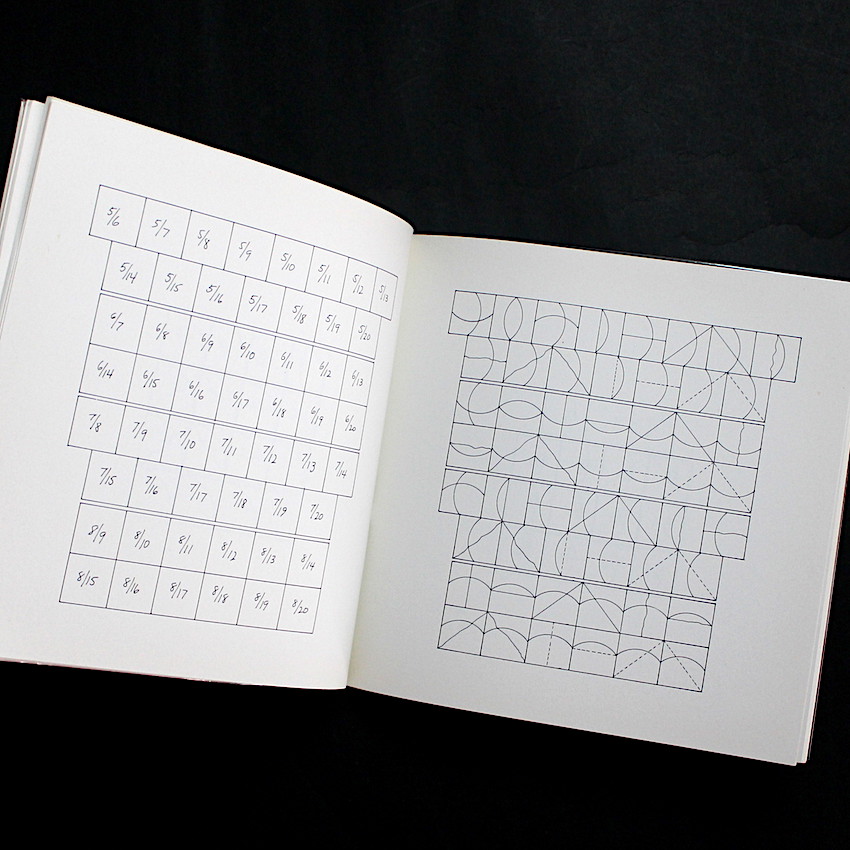 5/6 5/7 5/8 5/9 5/10 5/11 5/12 5/13
5/14 5/15 5/16 5/17 5/18 5/19 5/20
6/7 6/8 6/9 6/10 6/11 6/12 6/13
6/14 6/15 6/16 6/17 6/18 6/19 6/20
7/8 7/9 7/10 7/11 7/12 7/13 7/14
7/15 7/16 7/17 7/18 7/19 7/20
8/9 8/10 8/11 8/12 8/13 8/14
8/15 8/16 8/17 8/18 8/19 8/20